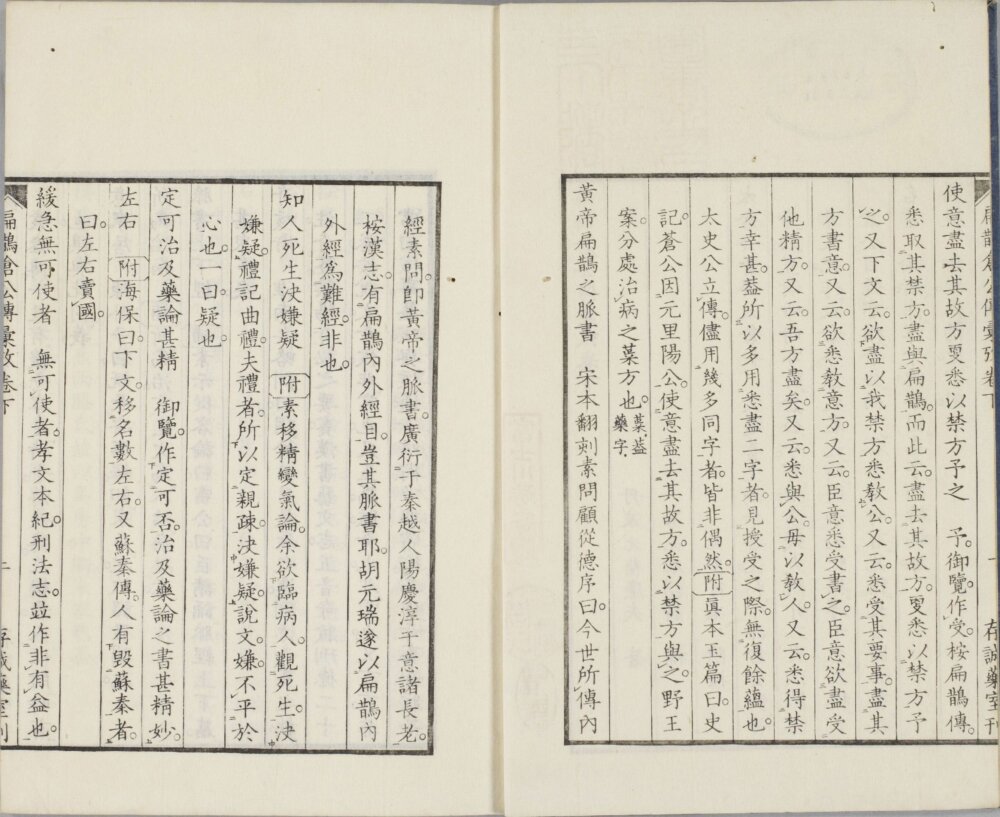 使意盡去其故方更悉以禁方予之　予御覽作受桉扁鵲傳
悉取其禁方盡與扁鵲而此云盡去其故方更悉以禁方予
之又下文云欲盡以我禁方悉敎公又云悉受其要事盡其
方書意又云欲悉敎意方又云臣意悉受書之臣意欲盡受
他精方又云吾方盡矣又云悉與公毋以敎人又云悉得禁
方幸甚葢所以多用悉盡二字者見授受之際無復餘蘊也
太史公立傳儘用幾多同字者皆非偶然附眞本玉篇曰史
記蒼公因元里陽公使意盡去其故方悉以禁方與之野王
案分處治病之葉方也葉葢
藥字
黃帝扁鵲之脈書　宋本翻刻素問顧從德序曰今世所傳內
存誠藥室刊
經素問卽黃帝之脈書廣衍于秦越人陽慶淳于意諸長老
桉漢志有扁鵲內外經目豈其脈書耶胡元瑞遂以扁鵲內
外經爲難經非也
知人死生決嫌疑　附素移精變氣論余欲臨病人觀死生決
嫌疑禮記曲禮夫禮者所以定親疎決嫌疑說文嫌不平於
心也一曰疑也
定可治及藥論甚精　御覽作定可否治及藥論之書甚精妙
左右　附海保曰下文移名數左右又蘇秦傳人有毀蘇秦者
曰左右賣國
緩急無可使者　無可使者孝文本紀刑法志竝作非有益也
扁鵲倉公傳彙攷卷下